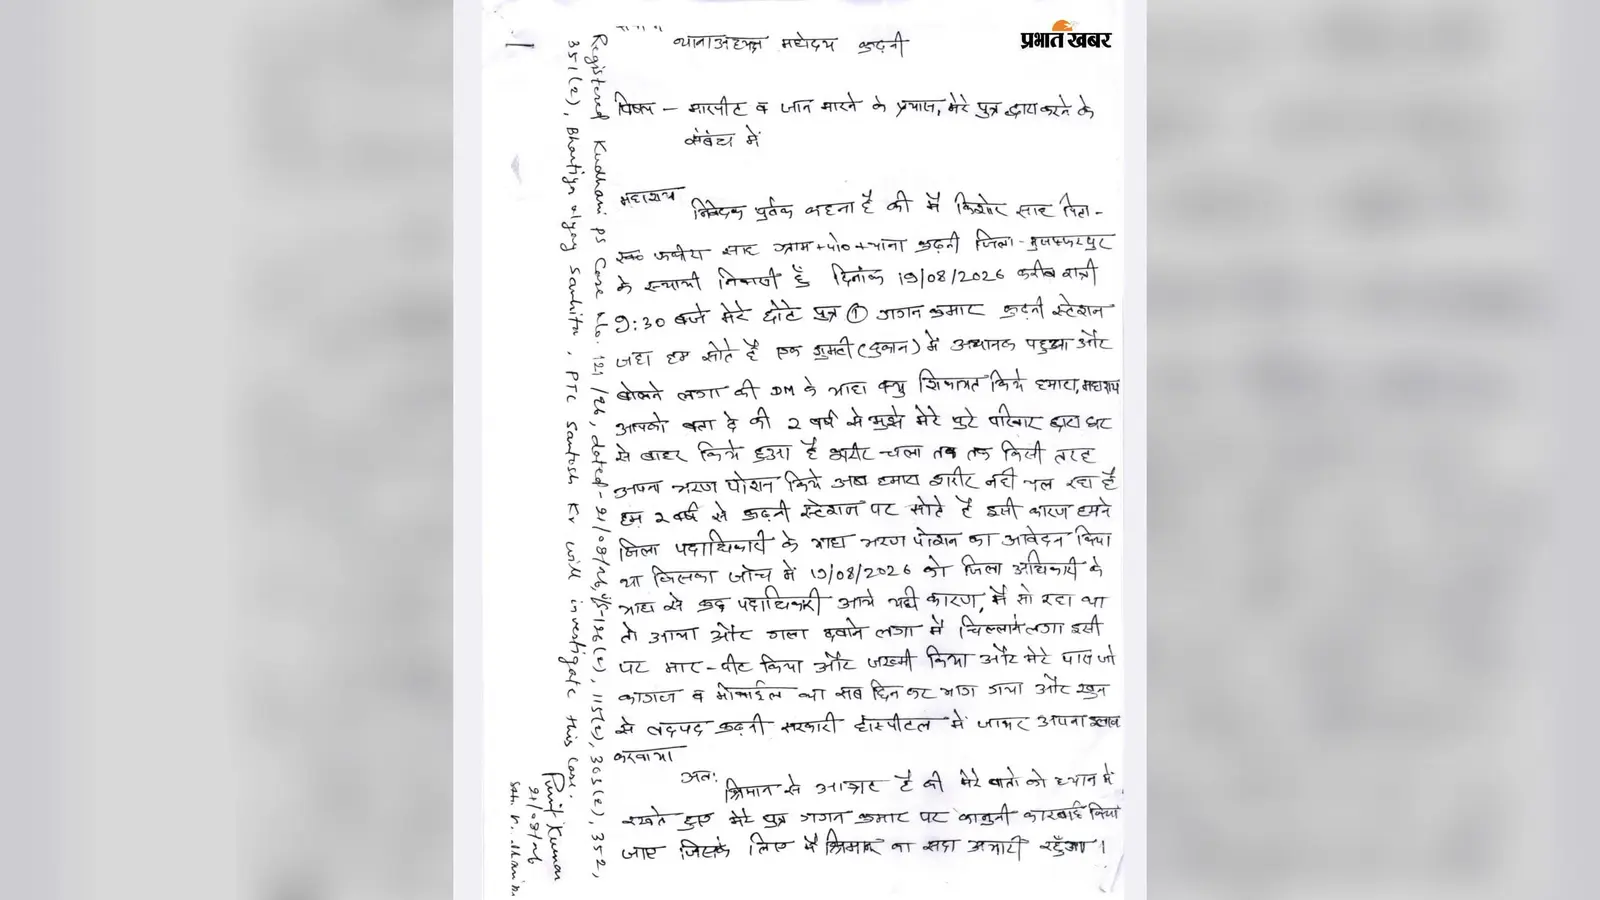 प्रभात खबर
थानाअध्यक्ष महोदय कुढ़नी
विषय – मारपीट व जान मारने के प्रयास, मेरे पुत्र द्वारा करने के
संबंध में
महाशय
निवेदक पुर्वक कहना है की मैं किशोर साह पिता-
स्व० साह ग्राम+पो०+थाना कुढ़नी जिला-मुजफ्फरपुर
के स्थायी निवासी हुँ दिनांक 19/08/2026 करीब रात्री
9:30 बजे मेरे छोटे पुत्र ① गगन कुमार कुढ़नी स्टेशन
जहा हम सोते है एक गुमटी (दुकान) में अचानक पहुचा और
बोलने लगा की DM के यहा क्यु शिकायत किये हमारा, महाशय
आपको बता दे की 2 वर्ष से मुझे मेरे पुरे परिवार द्वारा घर
से बाहर किये हुआ है शरीर चला तब तक किसी तरह
अपना भरण पोशन किये अब हमारा शरीर नही चल रहा है
हम 2 वर्ष से कुढ़नी स्टेशन पर सोते है इसी कारण हमने
जिला पदाधिकारी के यहा भरण पोशन का आवेदन किया
था जिसका जाँच में 19/08/2026 को जिला अधिकारी के
यहा से कुछ पदाधिकारी आये यही कारण, मैं सो रहा था
तो आया और गला दबाने लगा मैं चिल्लाने लगा इसी
पर मार-पीट किया और जख्मी किया और मेरे पास जो
कागज व मोबाईल था सब छिन कर भाग गया और खुन
से लदफद कुढ़नी सरकारी हॉस्पीटल में जाकर अपना इलाज
करवाया
अतः
श्रिमान से आग्रह है की मेरे बातो को ध्यान में
रखते हुए मेरे पुत्र गगन कुमार पर कानुनी कारवाई किया
जाए जिसके लिए मैं श्रिमान का सदा अभारी रहुँगा।
Registered Kudhani ps Case No. 121/26, dated-21/08/26, u/s-126(2), 115(2), 303(2), 352,
351(2), Bhartiya nyay Sanhita. PTC Santosh Kr will investigate this case.
21/08/26